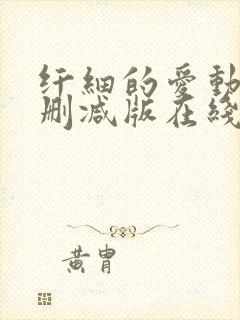 纤細的愛動
删减版在綫
黄胄